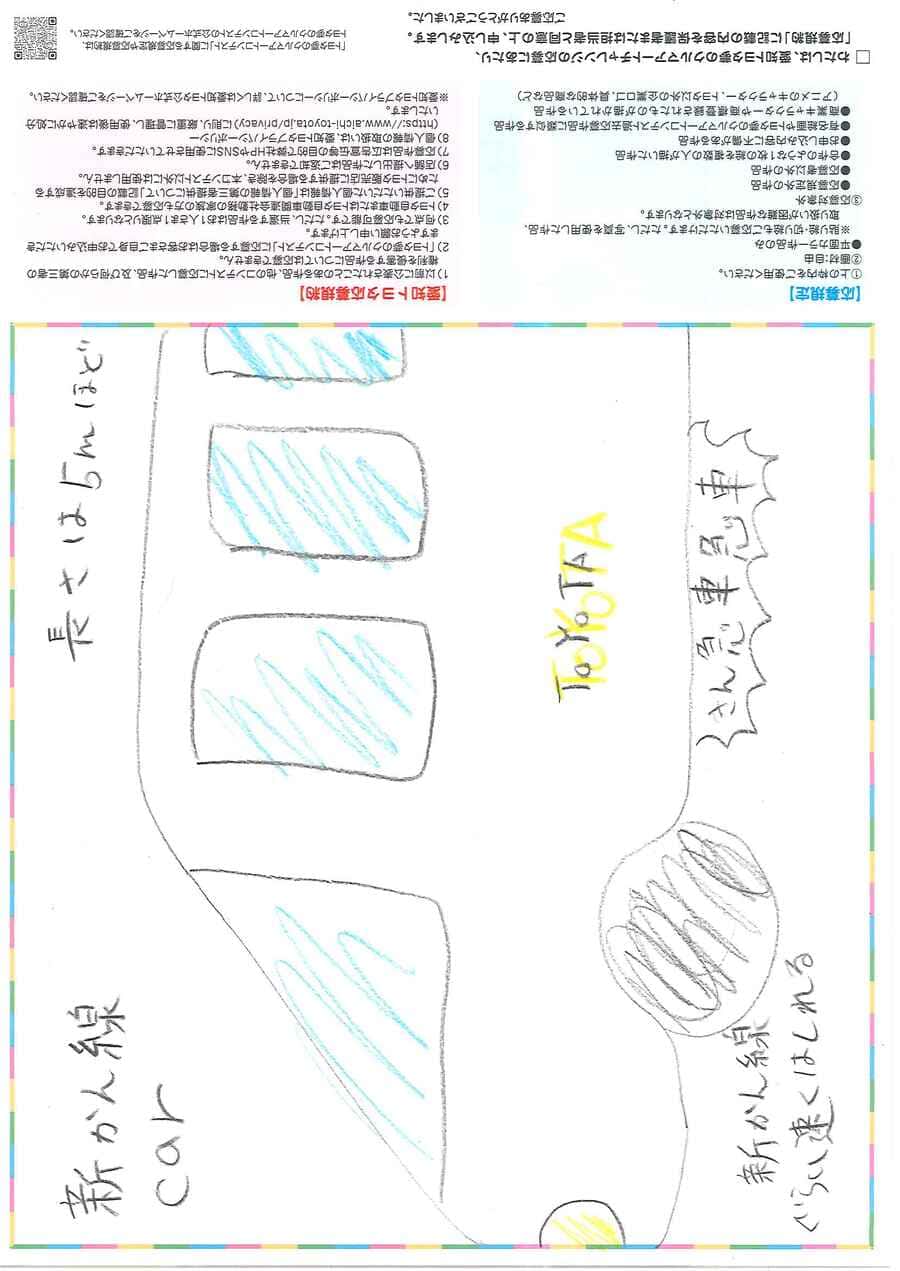 新かん線
car
長さは5mほど
TOYOTA
TOYOTA
さん急車急車
新かん線
ぐらい速くはしれる
【応募規定】
①上の枠内をご使用ください。
②画材:自由
●平面カラー作品のみ
※貼り絵・切り絵もご応募いただけます。ただし、写真を使用した作品、
取り扱いが困難な作品は対象外となります。
③応募対象外
●応募規定外の作品
●応募者以外の作品
●合作のような1枚の絵を複数の人が描いた作品
●お申し込み内容に不備がある作品
●有名絵画やトヨタ夢のクルマアートコンテスト過去応募作品に類似する作品
●商業キャラクターや商標登録されたものが描かれている作品
(アニメのキャラクター、トヨタ以外の企業ロゴ、具体的な商品など)
【愛知トヨタ応募規約】
1)以前に公表されたことのある作品、他のコンテストに応募した作品、及び何らかの第三者の
権利を侵害する作品については応募できません。
2)「トヨタ夢のクルマアートコンテスト」に応募する場合はお客さまご自身でお申込みいただき
ますようお願い申し上げます。
3)何点でも応募可能です。ただし、当選する作品はお1人さま1点限りとなります。
4)トヨタ自動車またはトヨタ自動車関連会社勤務の家族の方も応募できます。
5)ご提供いただいた個人情報は「個人情報の第三者提供について」記載の目的を達成する
ためにトヨタ販売店に提供する場合を除き、本コンテスト以外には使用しません。
6)店舗へ提出した作品はご返却できません。
7)応募作品は広告宣伝等の目的で弊社HPやSNSに使用させていただきます。
8)個人情報の取扱いは、愛知トヨタプライバシーポリシー
(https://www.aichi-toyota.jp/privacy)に則り、厳重に管理し、使用後は速やかに処分
いたします。
※愛知トヨタプライバシーポリシーについて、詳しくは愛知トヨタ公式ホームページをご確認ください。
□ わたしは、愛知トヨタ夢のクルマアートチャレンジの応募にあたり、
「応募規約」に記載の内容を保護者または担当者と同意の上、申し込みします。
ご応募ありがとうございました。
「トヨタ夢のクルマアートコンテスト」に関する応募規定や応募規約は、
トヨタ夢のクルマアートコンテストの公式ホームページをご確認ください。